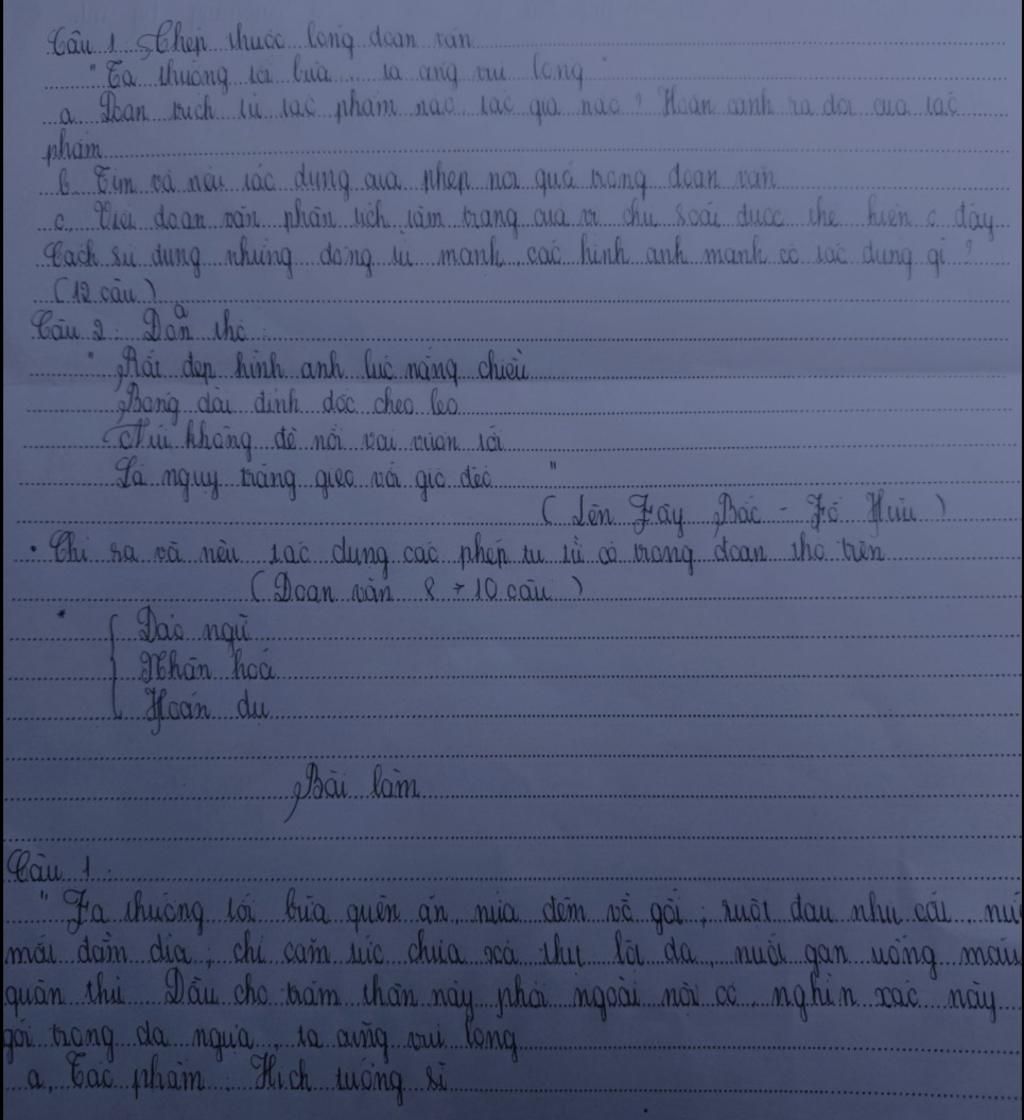 Câu 1. Chép thuộc lòng đoạn văn
"Ta thường tới bữa... ta cũng vui lòng"
a. Đoạn trích từ tác phẩm nào, tác giả nào? Hoàn cảnh ra đời của tác
phẩm
b. Tìm và nêu tác dụng của phép nói quá trong đoạn văn
c. Viết đoạn văn phân tích tâm trạng của vị chủ soái được thể hiện ở đây
Cách sử dụng những động từ mạnh, các hình ảnh mạnh có tác dụng gì?
(12 câu)
Câu 2: Đoạn thơ:
"Rất đẹp hình anh lúc nắng chiều
Bóng dài đỉnh dốc cheo leo
Núi không đè nổi vai vươn tới
Lá nguỵ trang reo với gió đèo"
(Lên Tây Bắc - Tố Hữu)
• Chỉ ra và nêu tác dụng các phép tu từ có trong đoạn thơ trên
(Đoạn văn 8 → 10 câu)
* { Đảo ngữ
Nhân hoá
Hoán dụ
Bài làm
Câu 1:
"Ta thường tới bữa quên ăn, nửa đêm vỗ gối, ruột đau như cắt, nước
mắt đầm đìa, chỉ căm tức chưa xả thịt lột da, nuốt gan uống máu
quân thù. Dẫu cho trăm thân này phơi ngoài nội cỏ, nghìn xác này
gói trong da ngựa, ta cũng vui lòng
a, Tác phẩm: Hịch tướng sĩ